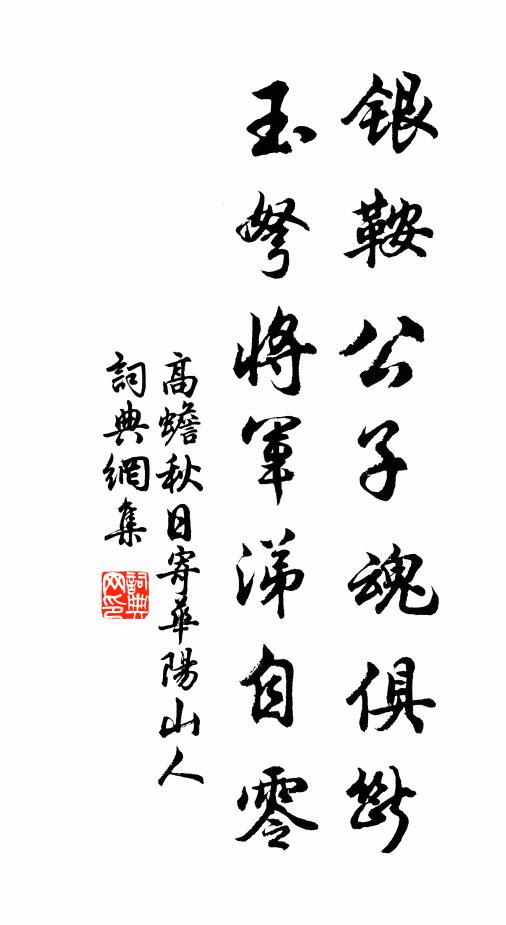 銀鞍公子魂俱斷
玉弩將軍涕自零
高蟾秋日寄華陽山人
詞典網集
詞典网印